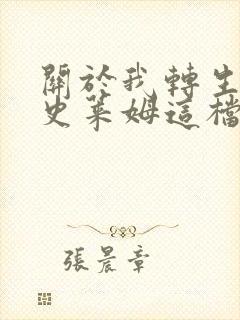 關於我轉生
史萊姆這檔
張晨章